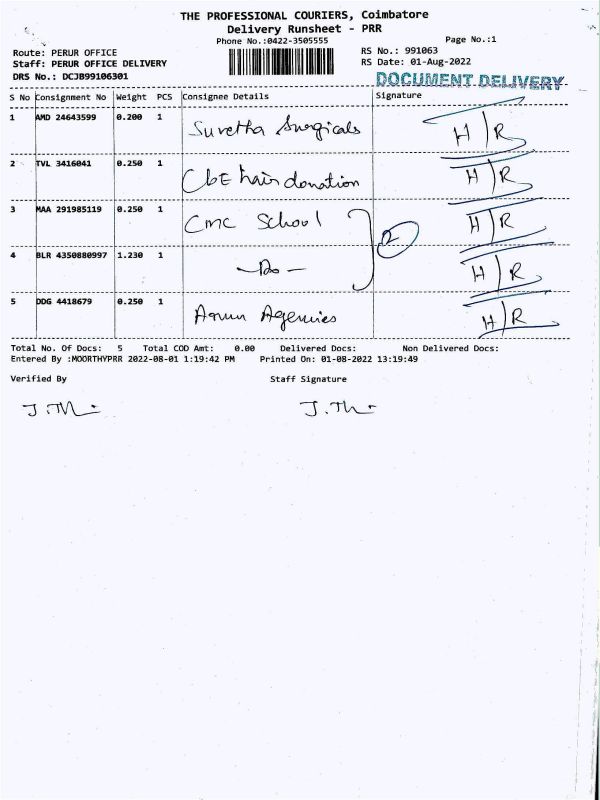 THE PROFESSIONAL COURIERS, Coimbatore
Delivery Runsheet - PRR
Phone No.:0422-3505555 Page No.:1
Route: PERUR OFFICE RS No.: 991063
Staff: PERUR OFFICE DELIVERY RS Date: 01-Aug-2022
DRS No.: DCJB99106301 DOCUMENT DELIVERY
S No Consignment No Weight PCS Consignee Details Signature
1 AMD 24643599 0.200 1 Suretha Surgicals H/R
2 TVL 3416041 0.250 1 CbE hair donation H/R
3 MAA 291985119 0.250 1 CMC School H/R
4 BLR 4350880997 1.230 1 -Do- 2 H/R
5 DDG 4418679 0.250 1 Agencies H/R
Total No. Of Docs: 5 Total COD Amt: 0.00 Delivered Docs: Non Delivered Docs:
Entered By :MOORTHYPRR 2022-08-01 1:19:42 PM Printed On: 01-08-2022 13:19:49
Verified By Staff Signature